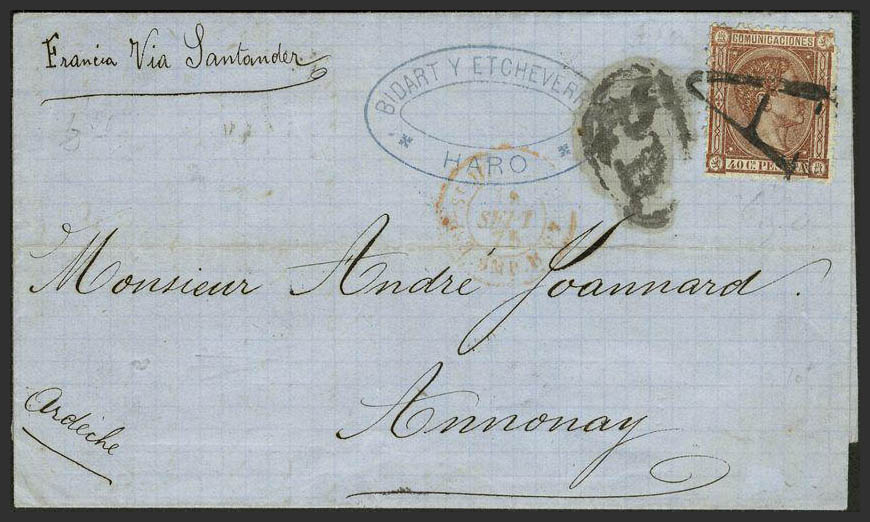 Francia Via Santander
BIDART Y ETCHEVERR
HARO
COMUNICACIONES
40 Cs PE
SEPT
Monsieur André Joannard.
Annonay
Ardèche